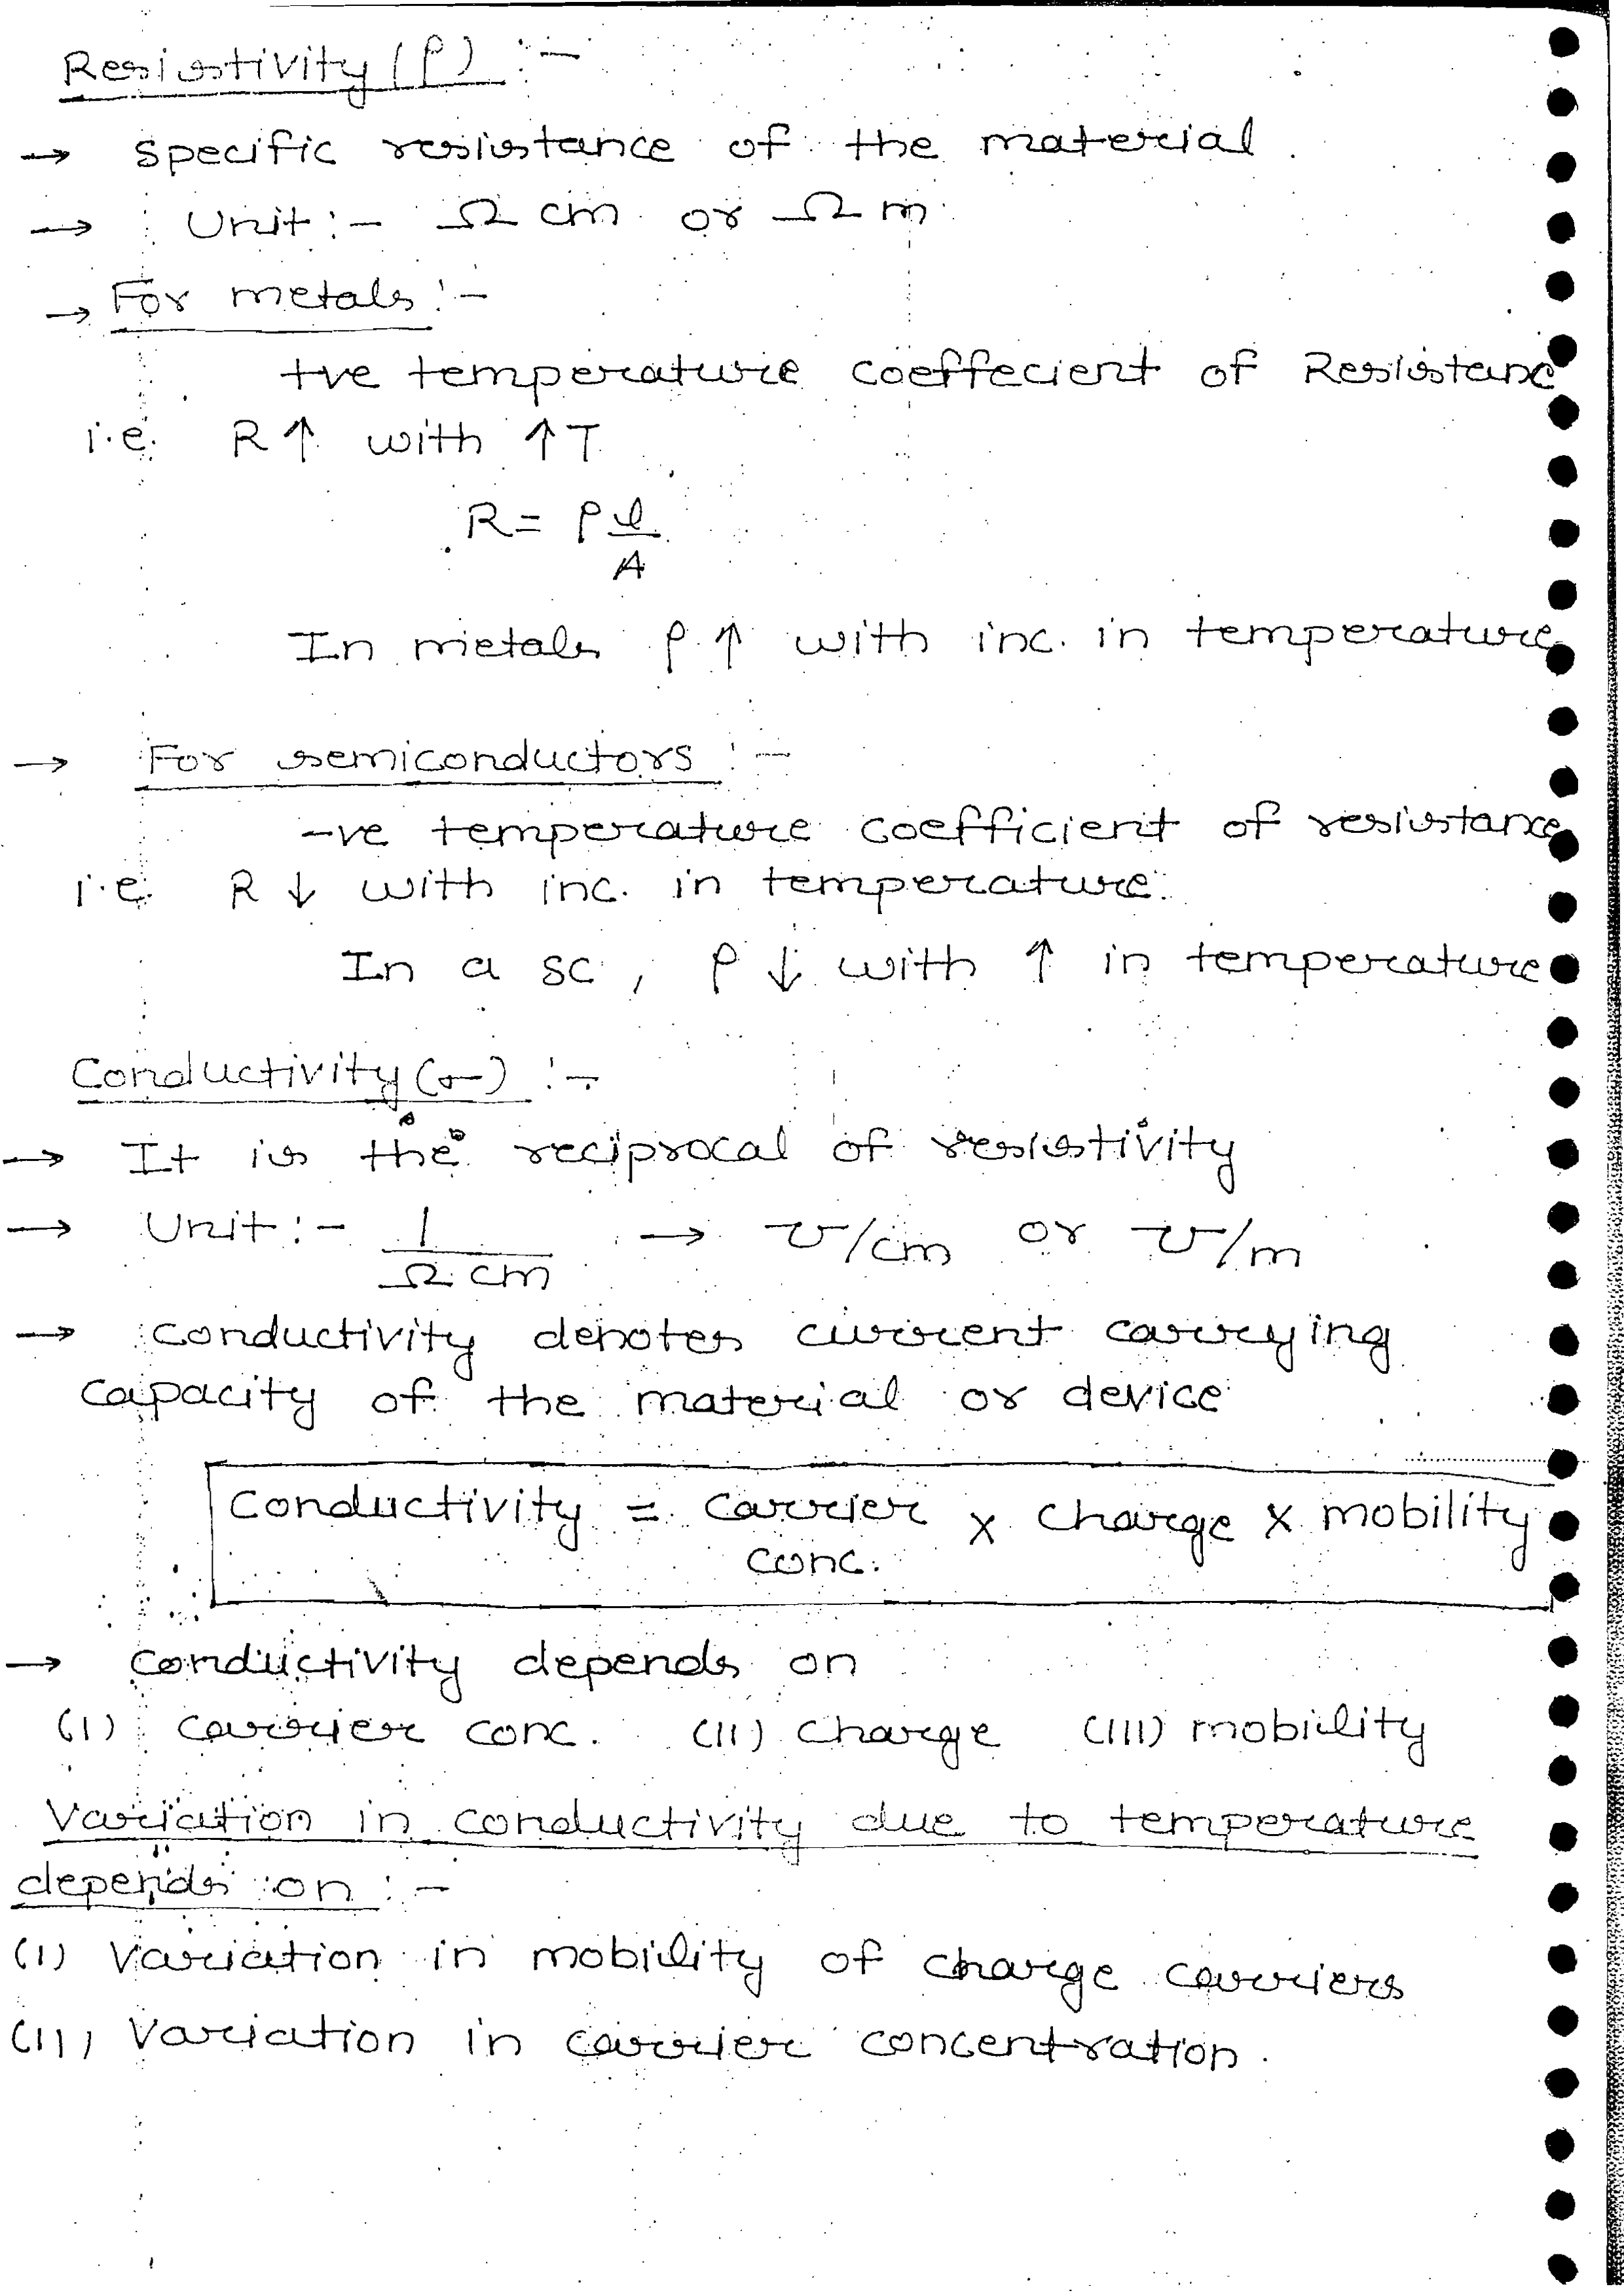 Resistivity (ρ) :-
→ specific resistance of the material.
→ Unit :- Ω cm or Ω m
→ For metals :-
+ve temperature coeffecient of Resistanc
i.e. R ↑ with ↑ T
R = ρ l
A
In metals ρ ↑ with inc. in temperature
→ For semiconductors :-
-ve temperature coefficient of resistance
i.e. R ↓ with inc. in temperature.
In a sc, ρ ↓ with ↑ in temperature
Conductivity (σ) :-
→ It is the reciprocal of resistivity
→ Unit :- 1/Ω cm → ℧/cm or ℧/m
→ conductivity denotes current carrying
capacity of the material or device
Conductivity = carrier conc. × charge × mobility
→ conductivity depends on
(I) carrier conc. (II) charge (III) mobility
Variation in conductivity due to temperature
depends on :-
(I) Variation in mobility of charge carriers
(II) Variation in carrier concentration.